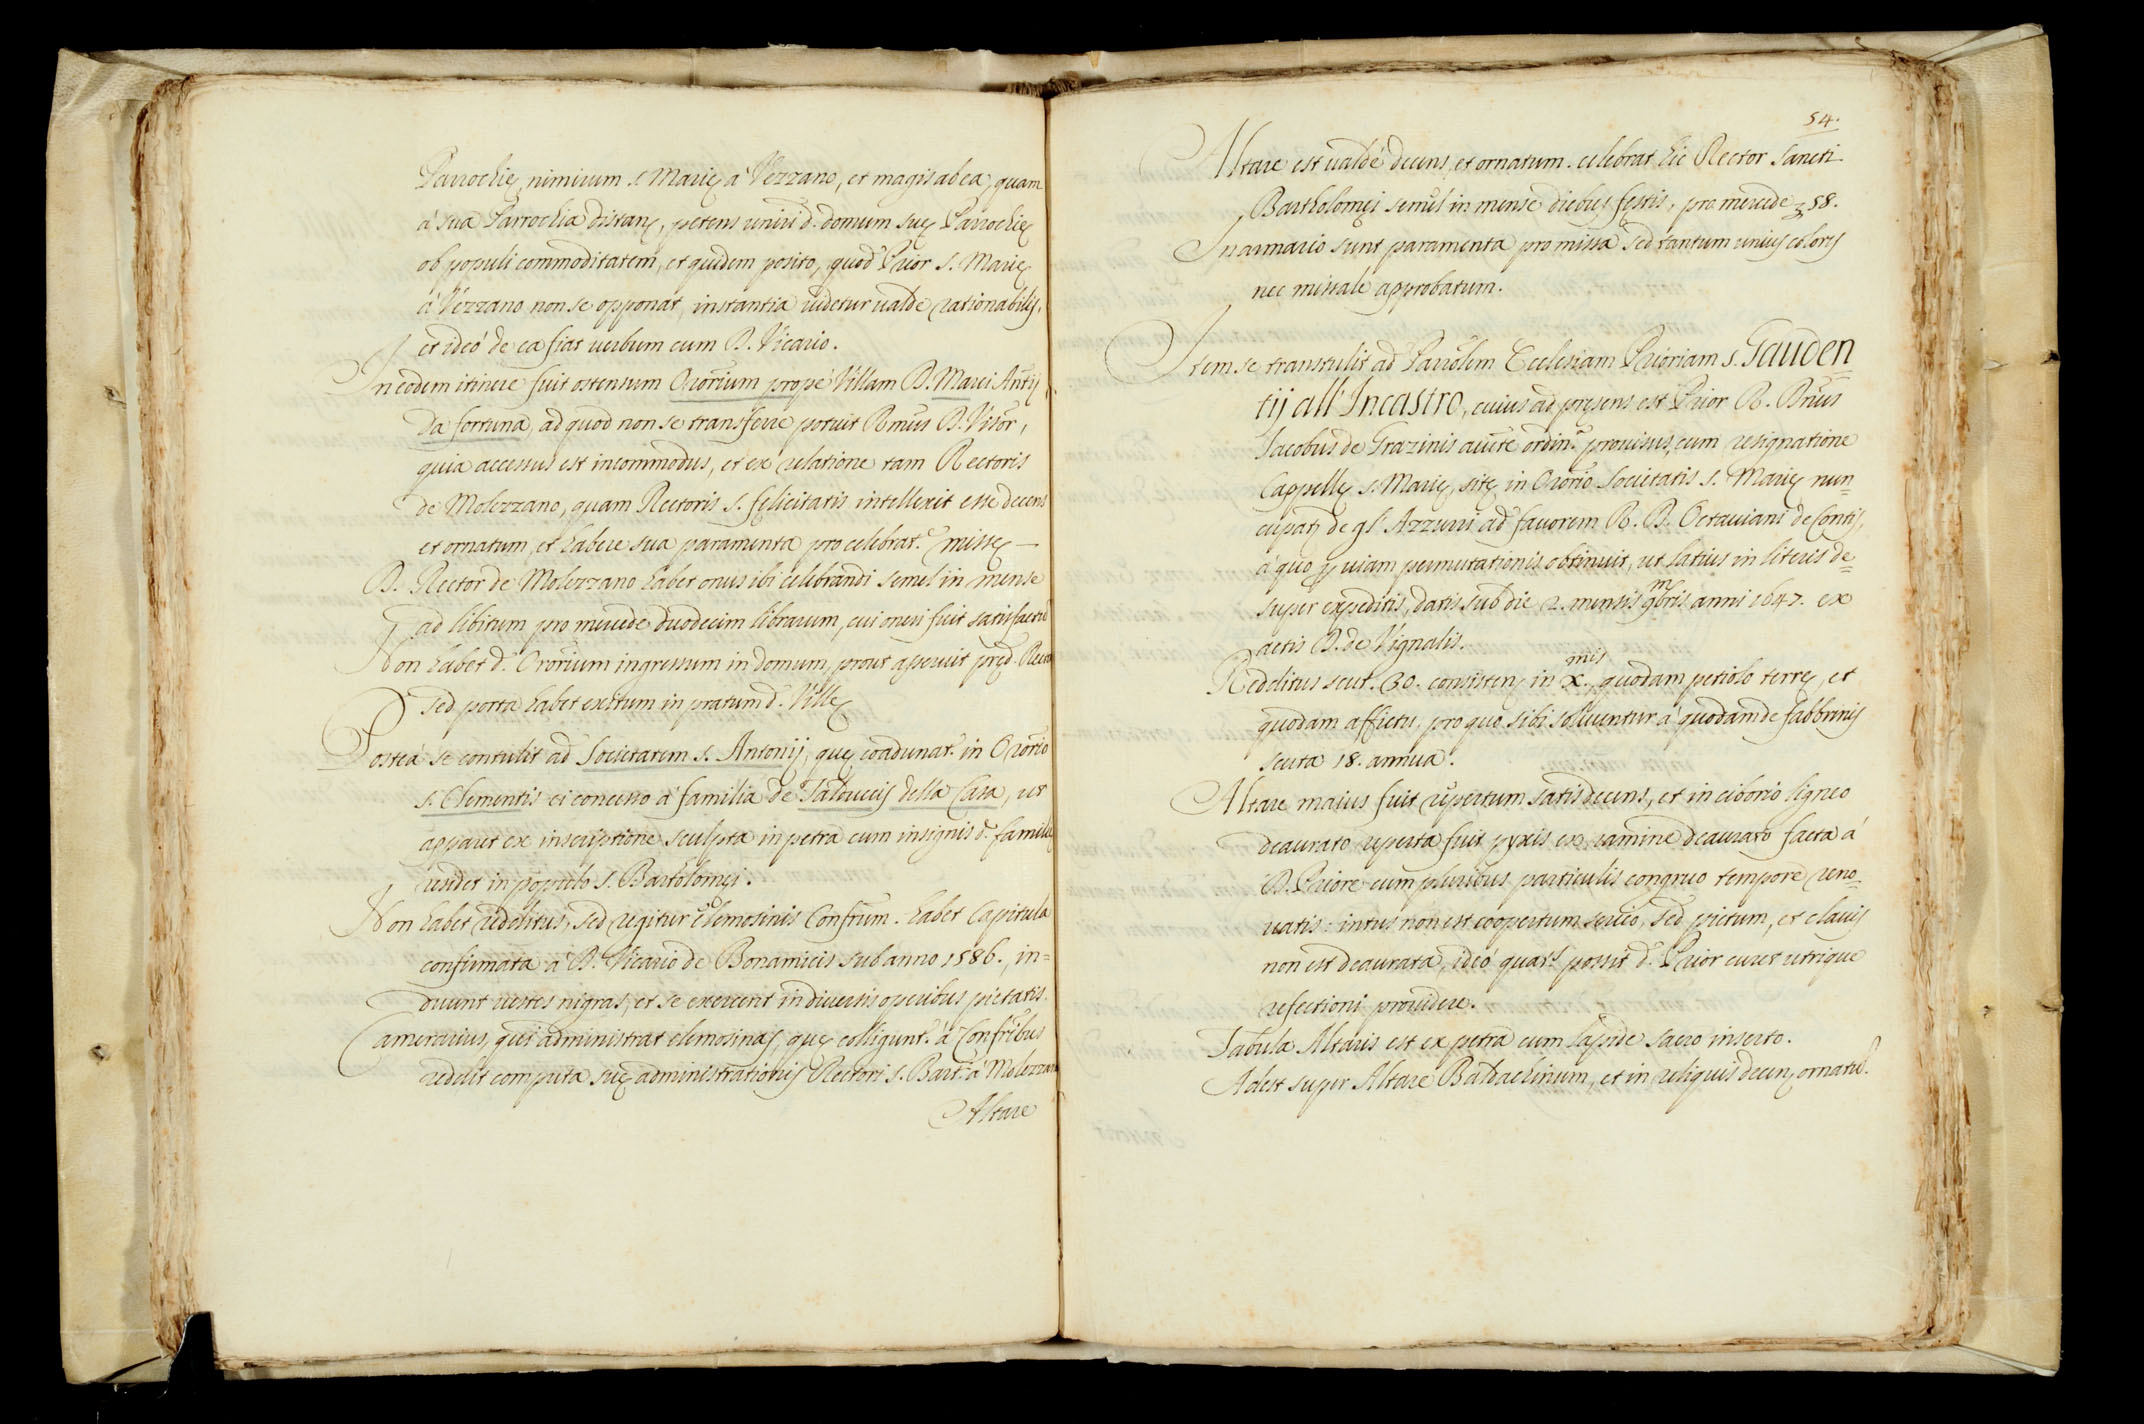 Parrochię, nimirum s. Marię à Vezzano, et magis ab ea, quam
à sua Parrochia distans, petens uniri d. domum suę Parrochię
ob populi commoditatem, et quidem posito, quod Prior S. Marię
à Vezzano non se opponat, instantia uidetur ualde rationabilis,
et ideò de ea fiat uerbum cum D. Vicario.
In eodem itinere fuit ostensum Ororium propè Villam D. Marci Antij
da fortuna, ad quod non se transferre potuit Rmus D. Visor,
quia accessus est incommodus, et ex relatione tam Rectoris
de Molezzano, quam Rectoris S. felicitatis intellexit esse decens
et ornatum, et habere sua paramenta pro celebrat.e missę —
D. Rector de Molezzano habet onus ibi celebrandi semel in mense
ad libitum pro mercede duodecim librarum, cui oneri fuit satisfactū
Non habet d. Ororium ingressum in domum, prout asseruit pręd. Rector
sed porta habet exitum in pratum d. Villę
Postea se contulit ad Societatem S. Antonij, quę coadunat.r in Ororio
S. Clementis ei concesso à familia de Talduccis della Casa, ut
apparet ex inscriptione sculpta in petra cum insignis d. familię
uidet in populo S. Bartholomęi.
Non habet redditus, sed regitur elemosinis Confrum. habet Capitula
confirmata à D. Vicario de Bonamicis sub anno 1586., in=
duunt uestes nigras, et se exercent in diuersis operibus pietatis.
Camerarius, qui administrat elemosinas, quę colligunt.r à Confribus
reddit computa suę administrationis Rectori S. Bart.i à Molezzano
Altare
54.
Altare est ualdè decens, et ornatum. celebrat hic Rector Sancti
Bartholomęi semel in mense diebus festis, pro mercede 58.
In armario sunt paramenta pro missa sed tantum unius coloris
nec missale approbatum.
Item se transtulit ad Parrolem Ecclesiam Prioriam S. Gauden
tij all'Incastro, cuius ad pręsens est Prior R. Dnus
Jacobus de Grazinis aucte ordin.a prouisus, cum resignatione
Cappellę S. Marię, sitę in Ororio Societatis S. Marię nun=
cupat. de gl'Azzurri ad fauorem R. D. Octauiani de Contis,
à quo p uiam permutationis obtinuit, ut latius in literis de=
super expeditis, datis sub die 2. mensis 9mbris anni 1647. ex
actis D. de Vignalis.
Redditus scut. 30. consistens in x.mis, quodam petiolo terrę, et
quodam affictu, pro quo sibi soluuntur à quodam de fabbrinis
scuta 18. annua.
Altare maius fuit repertum satis decens, et in ciborio ligneo
deaurato reperta fuit pyxis ex ramine deaurato facta à
D. Priore cum pluribus particulis congruo tempore reno=
uatis: intus non est coopertum serico, sed pictum, et clauis
non est deaurata, ideò quar. possit d. Prior curet utrique
refectioni prouidere.
Tabula Altaris est ex petra cum lapide sacro inserto.
Adest super Altare Baldachinum, et in reliquis decens, ornatū.